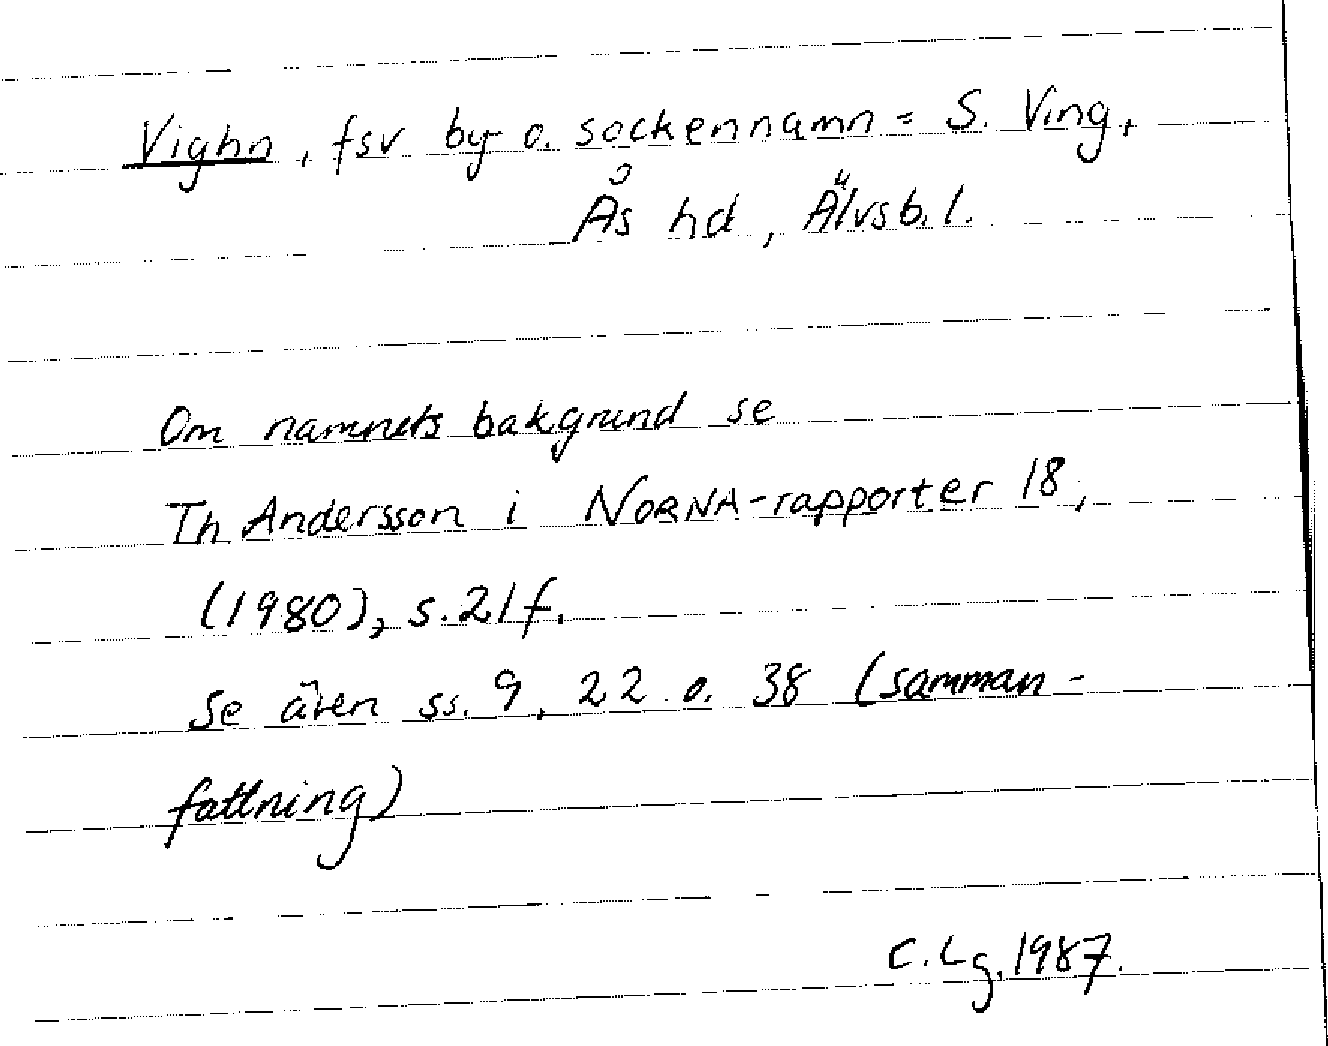 Vighn, fsv by o. sockennamn = S. Ving,
Ås hd, Älvsb. l.
Om namnets bakgrund se
Th Andersson i NORNA-rapporter 18,
(1980), s. 21 f.
Se även ss. 9, 22 o. 38 (samman-
fattning)
C. Lg. 1987.